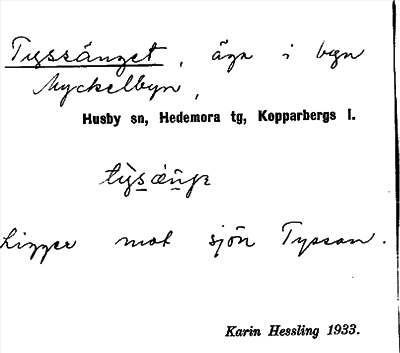 Tyssänget, äga i byn
Myckelbyn,
Husby sn, Hedemora tg, Kopparbergs l.
Ligger mot sjön Tyssan.
Karin Hessling 1933.